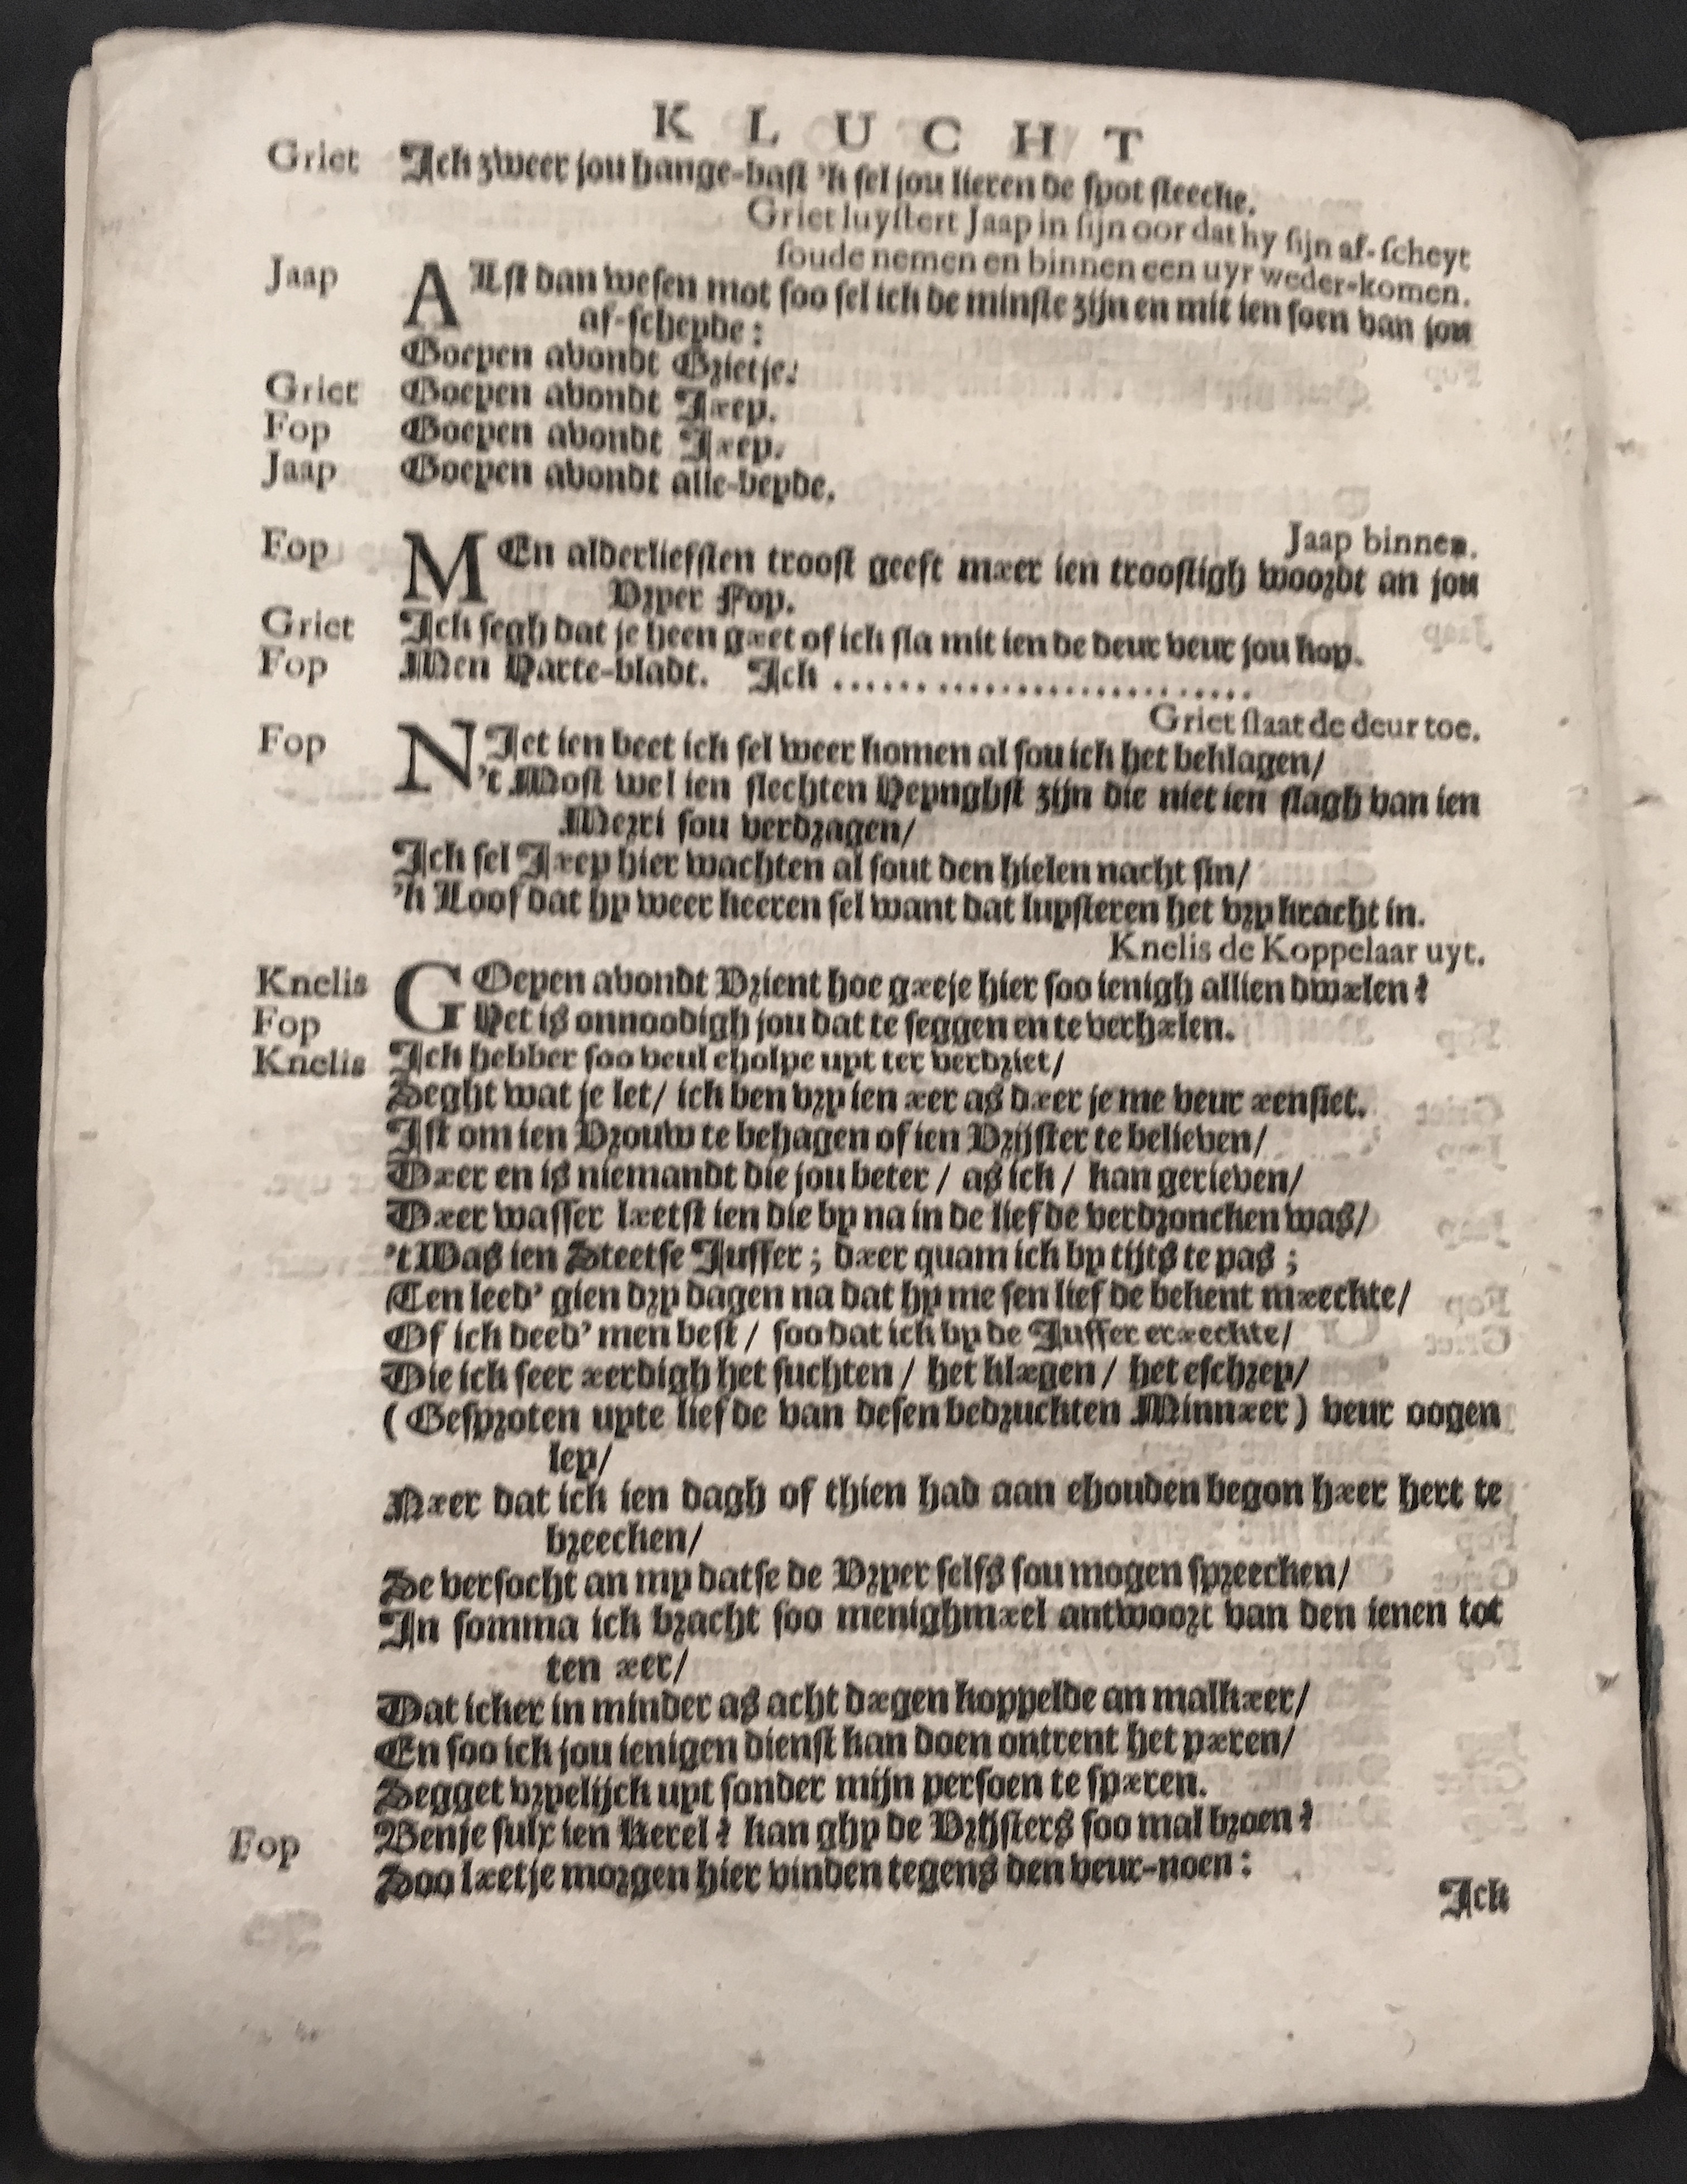 KLUCHT
Griet Ick zweer jou hange-bast 'k sel jou lieren de spot steecke.
Griet luystert Jaap in sijn oor dat hy sijn af-scheyt
soude nemen en binnen een uyr weder-komen.
Jaap ALst dan wesen mot soo sel ick de minste zijn en mit ien soen van jou
af-scheyde:
Goeyen avondt Grietje.
Griet Goeyen avondt Jæp.
Fop Goeyen avondt Jæp.
Jaap Goeyen avondt alle-beyde.
Jaap binnen.
Fop MEn alderliefsten troost geeft mæer ien troostigh woordt an jou
Vryer Fop.
Griet Ick segh dat je heen gæet of ick sla mit ien de deur veur jou kop.
Fop Men Harte-bladt. Ick ............................
Griet slaat de deur toe.
Fop NIet ien beet ick sel weer komen al sou ick het beklagen/
't Most wel ien slechten Heynghst zijn die niet ien slagh van ien
Merri sou verdragen/
Ick sel Jæep hier wachten al sout den hielen nacht sin/
'k Loof dat hy weer keeren sel want dat luysteren het vry kracht in.
Knelis de Koppelaar uyt.
Knelis GOeyen avondt Vrient hoe gæeje hier soo ienigh allien dwælen?
Fop Het is onnoodigh jou dat te seggen en te verhælen.
Knelis Ick hebber soo veul eholpe uyt ter verdriet/
Seght wat je let/ ick ben vry ien æer as dæer je me veur æensiet.
Ist om ien Vrouw te behagen of ien Vrijster te believen/
Dæer en is niemandt die jou beter / as ick / kan gerieven/
Dæer wasser læetst ien die by na in de liefde verdroncken was/
't Was ien Steetse Juffer; dæer quam ick by tijts te pas;
Ten leed' gien dry dagen na dat hy me sen liefde bekent mæeckte/
Of ick deed' men best / soo dat ick by de Juffer eræeckte/
Die ick seer æerdigh het suchten / het klægen / het eschrey/
(Gesproten uyte liefde van desen bedruckten Minnæer) veur oogen
ley/
Nær dat ick ien dagh of thien had aan ehouden begon hæer hert te
breecken/
Se versocht an my datse de Vryer selfs sou mogen spreecken/
In somma ick bracht soo menighmæel antwoort van den ienen tot
ten æer/
Dat icker in minder as acht dægen koppelde an malkæer/
En soo ick jou ienigen dienst kan doen ontrent het pæren/
Segget vryelijck uyt sonder mijn persoen te spæren.
Fop Benje sulx ien Kerel? kan ghy de Vrijsters soo mal broen?
Soo læetje morgen hier vinden tegens den veur-noen:
Ick